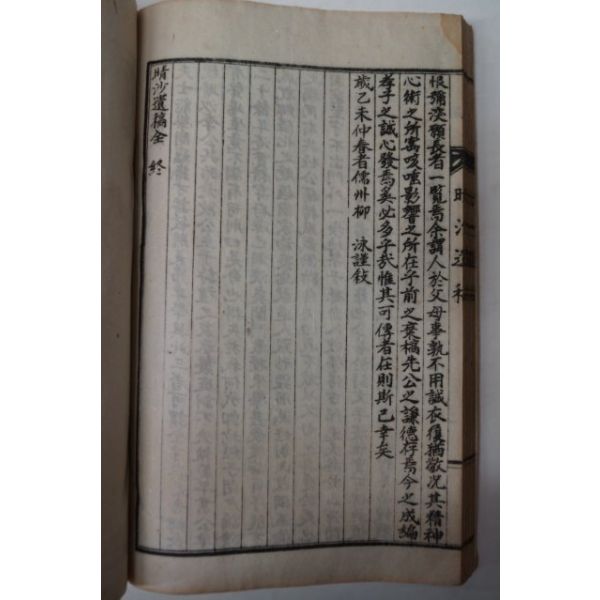 恨彌深願長者一覧焉余謂人於父母事孰不用誠衣履猶敬況其精神
心術之所寓咳唾影響之所在乎前之棄槁先公之謙德存焉今之成編
孝子之誠心發焉奚必多乎哉惟其可傳者在則斯已幸矣
歲乙未仲春者儒州柳 泳謹敍
晴沙遺稿全 終
晴沙遺稿